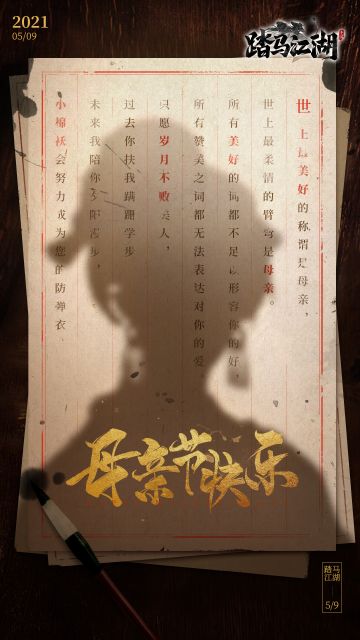 2021
05/09
踏马江湖
世上最美好的称谓是母亲，
世上最柔情的臂弯是母亲。
所有美好的词都不足以形容你的好，
所有赞美之词都无法表达对你的爱，
只愿岁月不败美人，
过去你扶我蹒跚学步
未来我陪你夕阳步，
小棉袄会努力成为您的防弹衣。
母亲节快乐
踏马江湖
5/9